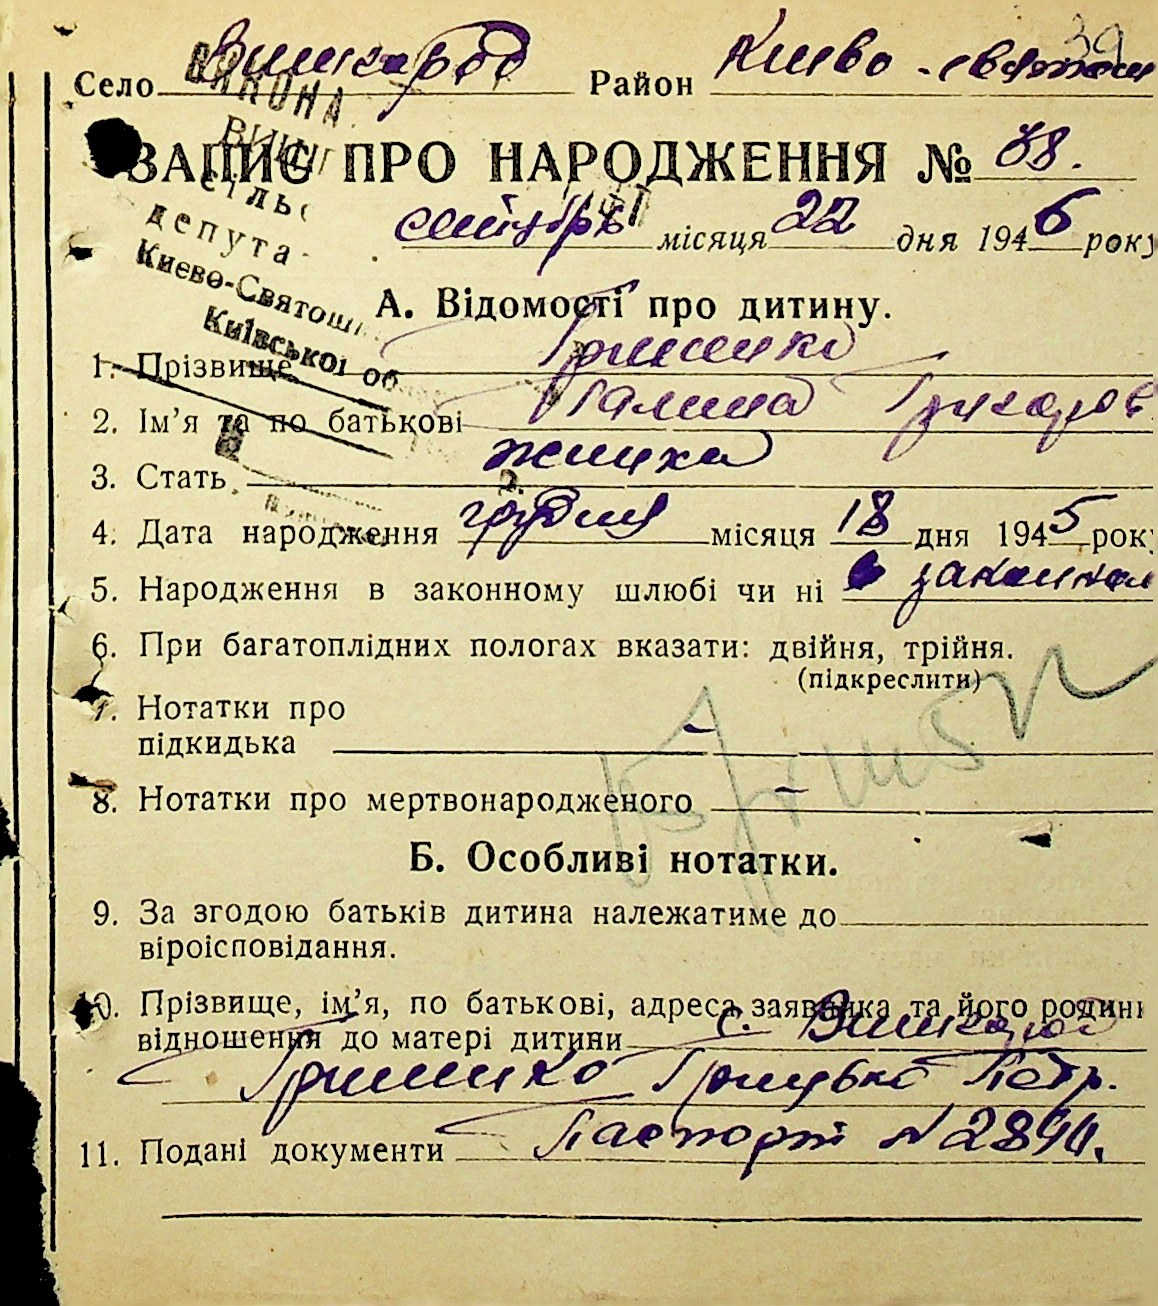 39
Село Вишгород Район Києво-Святошин
ЗАПИС ПРО НАРОДЖЕННЯ № 88.
місяця 22 дня 1946 року
ВИКОНА
ВИШГ
СІЛЬС
депута
Києво-Святош
Київської об
А. Відомості про дитину.
1. Прізвище Гришенко
2. Ім’я та по батькові Галина Григоров
3. Стать жіноча
4. Дата народження грудня місяця 18 дня 1945 року
5. Народження в законному шлюбі чи ні в законном
6. При багатоплідних пологах вказати: двійня, трійня.
(підкреслити)
7. Нотатки про
підкидька –
8. Нотатки про мертвонародженого –
Б. Особливі нотатки.
9. За згодою батьків дитина належатиме до
віроісповідання.
10. Прізвище, ім’я, по батькові, адреса заявника та його родинн
відношення до матері дитини с. Вишгород
Гришенко Грицько Петр.
11. Подані документи Паспорт №